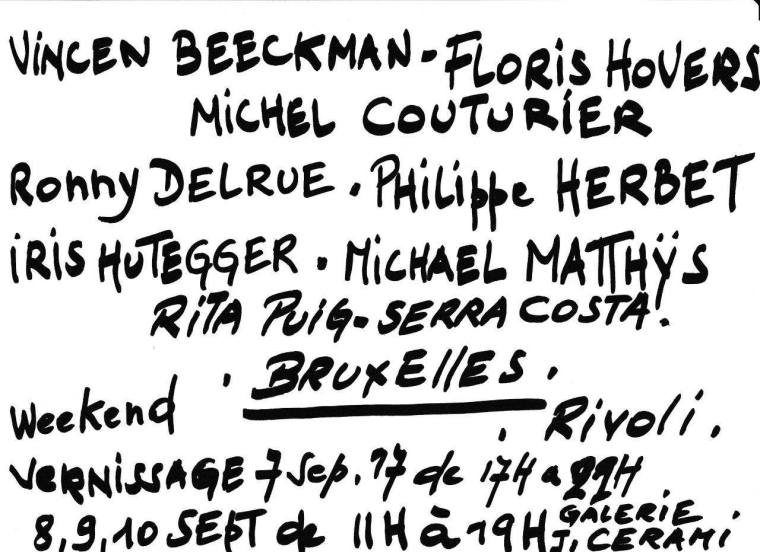 VINCEN BEECKMAN - FLORIS HOVERS
MICHEL COUTURIER
Ronny DELRUE . PHILippe HERBET
IRIS HUTEGGER . MICHAEL MATTHŸS
RITA PUIG-SERRA COSTA!
. BRUXELLES .
Weekend . Rivoli .
VERNISSAGE 7 Sep. 17 de 17H a 22H
8,9,10 SEPT de 11H à 19H GALERIE
J. CERAMI